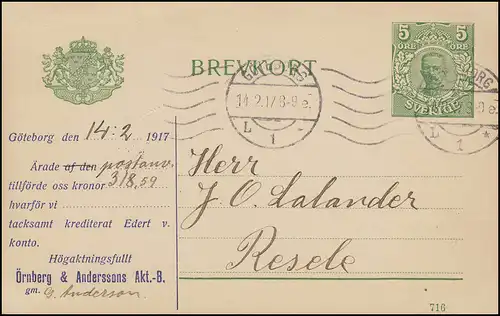 5 5
ÖRE ÖRE
BREVKORT
SVERIGE
GÖTEBORG
14.2.17.8-9 e.
L 1
L 1 *
Göteborg den 14:2 1917
Ärade af den postanv.
tillförde oss kronor 318,59
hvarför vi
tacksamt krediterat Edert v.
konto.
Högaktningsfullt
Örnberg & Anderssons Akt.-B.
gm. G. Anderson.
Herr
J. O. Lalander
Resele
716